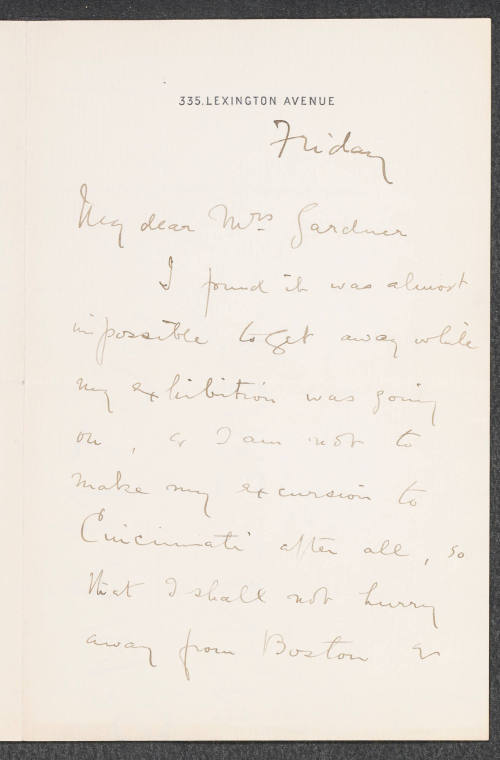 335.LEXINGTON AVENUE
Friday
My dear Mrs. Gardner
I found it was almost
impossible to get away while
my exhibition was going
on, & I am not to
make my excursion to
Cincinnati after all, so
that I shall not hurry
away from Boston &